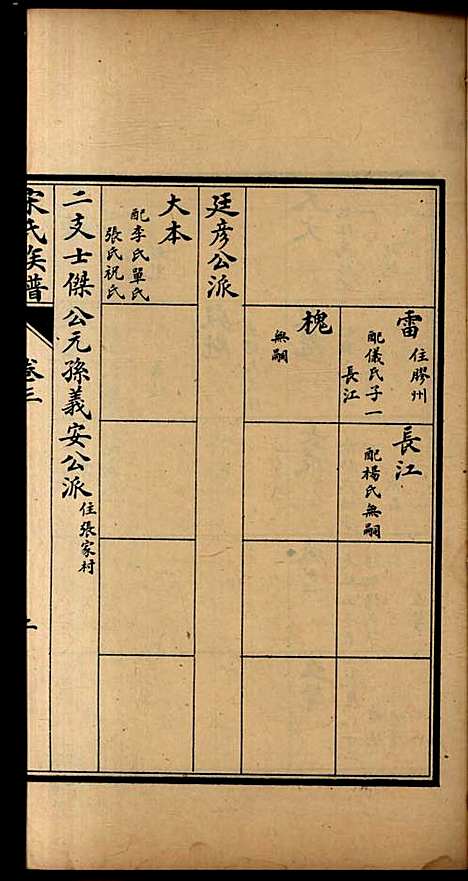 雷
住膠州
配儀氏子一
長江
長江
配楊氏無嗣
槐
無嗣
廷彥公派
大本
配李氏單氏
張氏祝氏
二支士傑公元孫義安公派
住張家村
宋氏族譜
卷三